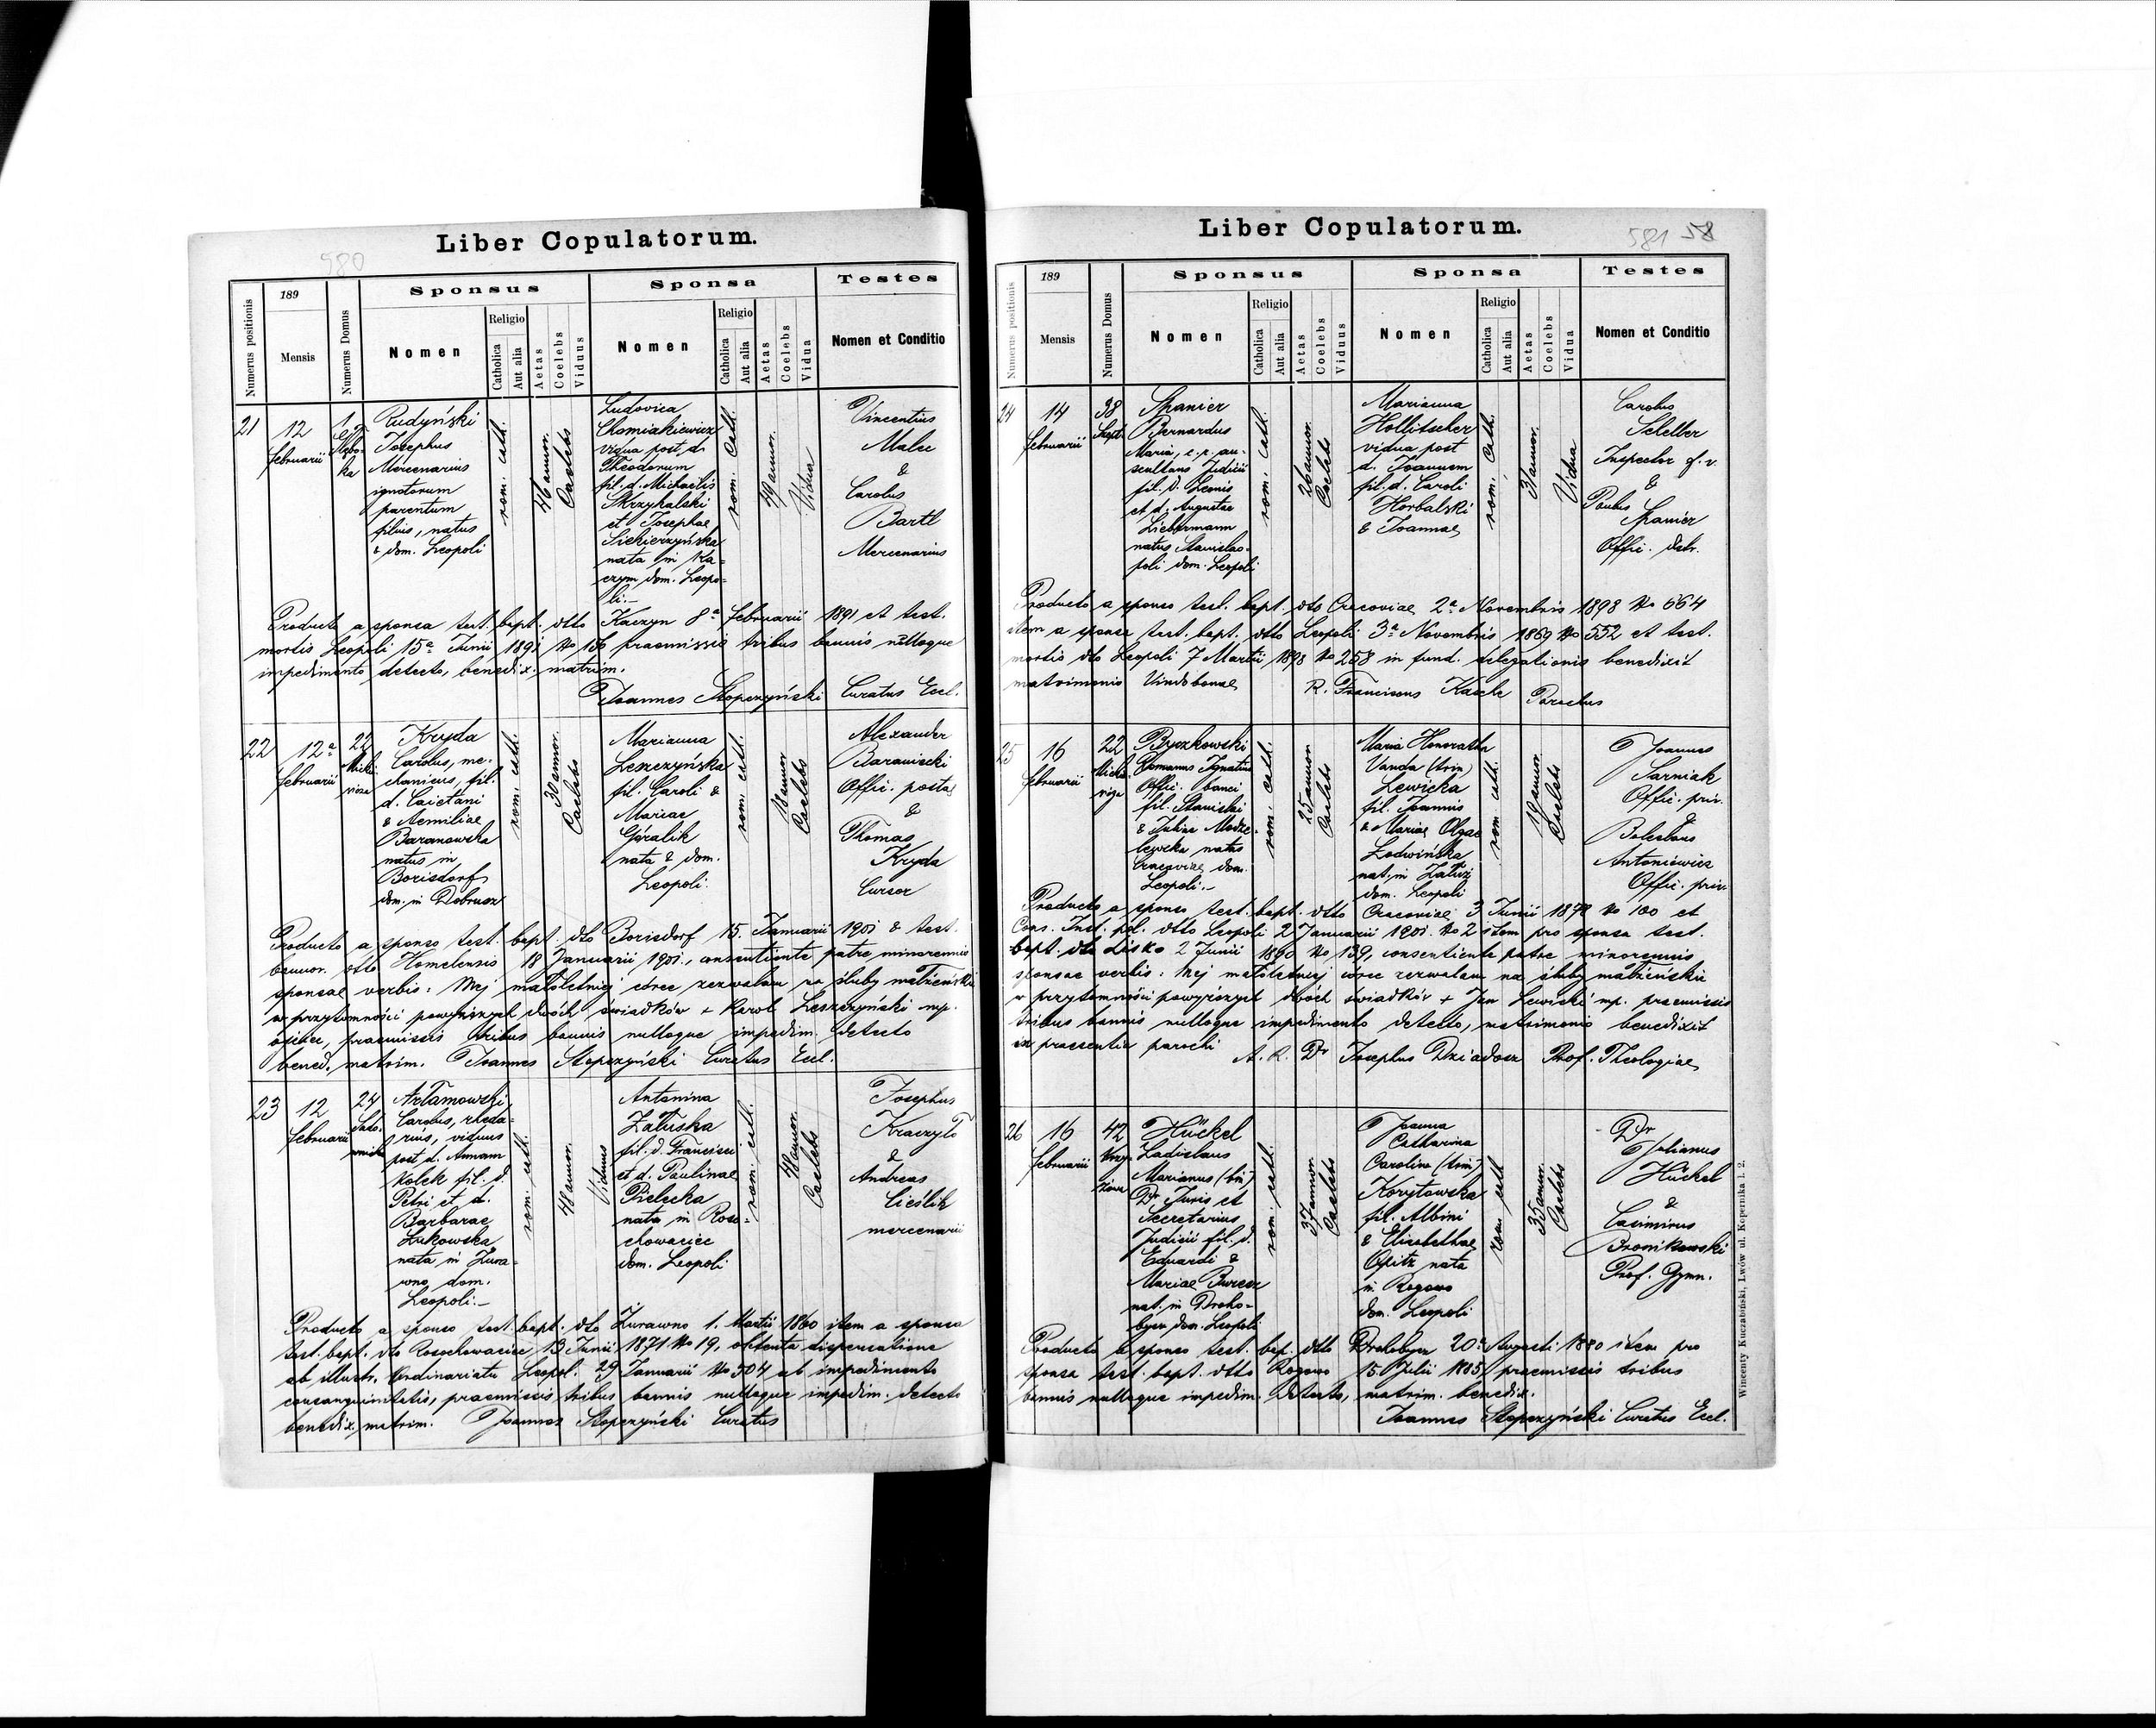 Liber Copulatorum.
980
Numerus positionis
189
Mensis
Numerus Domus
Sponsus
Nomen
Religio
Catholica
Aut alia
Aetas
Coelebs
Viduus
Sponsa
Nomen
Religio
Catholica
Aut alia
Aetas
Coelebs
Vidua
Testes
Nomen et Conditio
21
12
Februarii
Rudyński
Josephus
Mercenarius
ignotorum
parentum
filius, natus
& dom. Leopoli
rom. cath.
46 annor.
Caelebs
Ludovica
Chomiakiewicz
vidua post d.
Theodorum
fil. d. Michaelis
Skrzykalski
et Josephae
Siekierzyńska
nata in Ka-
czym dom. Leopo-
li.-
rom. cath.
49 annor.
Vidua
Vincentius
Malec
&
Carolus
Bartl
Mercenarius
Producto a sponsa test. bapt. dtto Kaczyn 8a Februarii 1891 et test.
mortis Leopoli 15a Junii 1891 No 156 praemissis tribus bannis nulloque
impedimento detecto, benedix. matrim.
Joannes Stopczyński Curatus Eccl.
22
12a
Februarii
22
Mickie
wicza
Kryda
Carolus, me-
chanicus, fil.
d. Caietani
& Aemiliae
Baranowska
natus in
Borisdorf
dom. in Dobrusz
rom. cath.
30 annor.
Caelebs
Marianna
Leszczyńska
fil. Caroli &
Mariae
Góralik
nata & dom.
Leopoli.
rom. cath.
18 annor
Caelebs
Alexander
Baraniecki
Offic. postae
&
Thomas
Kryda
Cursor
Producto a sponso test. bapt. dto Borisdorf 15. Januarii 1901 & test.
bannor. dtto Homelensis 18 Januarii 1901., consentiente patre minorennis
sponsae verbis: Mej małoletniej córce zezwalam na śluby małżeńskie
w przytomności powyższych dwóch świadków + Karol Leszczyński mp.
ojciec, praemissis tribus bannis nulloque impedim. detecto
bened. matrim. Joannes Stopczyński Curatus Eccl.
23
12
Februarii
24
Sado-
wnicka
Artamowski
Carolus, rheda-
rius, viduus
post d. Annam
Kolek fil. d.
Petri et d.
Barbarae
Żukowska
nata in Żura-
wno, dom.
Leopoli.-
rom. cath.
41 annor.
Viduus
Antonina
Załuska
fil. d. Francisci
et d. Paulinae
Pielecka
nata in Roso-
chowaciec
dom. Leopoli
rom. cath.
Caelebs
Josephus
Kraczyło
&
Andreas
Cieślik
mercenarii
Producto a sponso test. bapt. dto Żurawno 1. Martii 1860 item a sponsa
test. bapt. dto Rosochowaciec 13 Junii 1871 No 19, obtenta dispensatione
ab illustr. Ordinariatu Leopol. 29 Januarii No 504 ab impedimento
consanguinitatis, praemissis tribus bannis nulloque impedim. detecto
benedix. matrim. Joannes Stopczyński Curatus
Liber Copulatorum.
581 58
Numerus positionis
189
Mensis
Numerus Domus
Sponsus
Nomen
Religio
Catholica
Aut alia
Aetas
Coelebs
Viduus
Sponsa
Nomen
Religio
Catholica
Aut alia
Aetas
Coelebs
Vidua
Testes
Nomen et Conditio
24
14
Februarii
38
Spanier
Bernardus
Maria, c. r. au-
scultans Judicii
fil. d. Leonis
et d. Augustae
Liebermann
natus Stanislao-
poli dom. Leopoli
rom. cath.
26 annor.
Caelebs
Marianna
Hollitscher
vidua post
d. Joannem
fil. d. Caroli
Horbalski
& Joannae
rom. cath.
31 annor.
Vidua
Carolus
Scheller
Inspector f. v.
&
Paulus
Spanier
Offic.
Producto a sponso test. bapt. dto Cracoviae 2a Novembris 1898 No 664
item a sponsa test. bapt. dtto Leopoli 3a Novembris 1869 No 552 et test.
mortis dto Leopoli 7 Martii 1898 No 258 in fund. delegationis benedixit
matrimonio Vindobonae R. Franciscus Kasche Parochus
25
16
Februarii
22
Mickie
wicza
Byczkowski
Romanus Ignatius
Offic. banci
fil. Stanislai
& Juliae Modze-
lewska natus
Cracoviae dom.
Leopoli.-
rom. cath.
25 annor
Caelebs
Maria Honoratha
Vanda (trin)
Lewicka
fil. Joannis
& Mariae Olgae
Łodwińska
nat. in Załuż
dom. Leopoli
rom. cath.
19 annor.
Caelebs
Joannes
Sarniak
Offic. priv.
&
Boleslaus
Antoniewicz
Offic. priv.
Producto a sponso test. bapt. dtto Cracoviae 3 Junii 1878 No 100 et
Cons. Inst. pol. dtto Leopoli 2 Januarii 1901. No 2 item pro sponsa test.
bapt. dto Lisko 2 Junii 1890 No 139, consentiente patre minorennis
sponsae verbis: Mej małoletniej córce zezwalam na śluby małżeńskie
w przytomności powyższych dwóch świadków + Jan Lewicki mp. praemissis
tribus bannis nulloque impedimento detecto, matrimonio benedixit
in praesentia parochi A. R. Dr Josephus Dziadosz Prof. Theologiae
26
16
Februarii
42
Hückel
Ladislaus
Marianus (bin)
Dr Juris et
Secretarius
Judicii fil. d.
Eduardi &
Mariae Buresz
nat. in Droho-
bycz dom. Leopoli
rom. cath.
37 annor.
Caelebs
Joanna
Catharina
Carolina (trin)
Korytowska
fil. Albini
& Elisabethae
Opitz nata
in Rogowo
dom. Leopoli
rom. cath
35 annor.
Caelebs
Dr
Julianus
Hückel
&
Casimirus
Bronikowski
Prof. Gymn.
Producto a sponso test. bap. dtto Drohobycz 20a Augusti 1880 item pro
sponsa test. bapt. dtto Rogowo 15. Julii 1885 praemissis tribus
bannis nulloque impedim. detecto, matrim. benedix.
Joannes Stopczyński Curatus Eccl.
Wincenty Kuczabiński, Lwów ul. Kopernika l. 2.